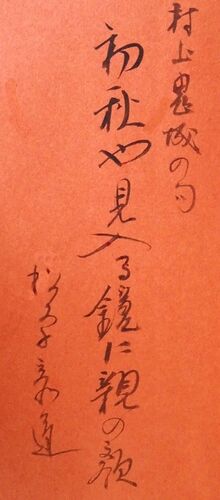 村上鬼城の句
初秋や見入る鏡に親の顔